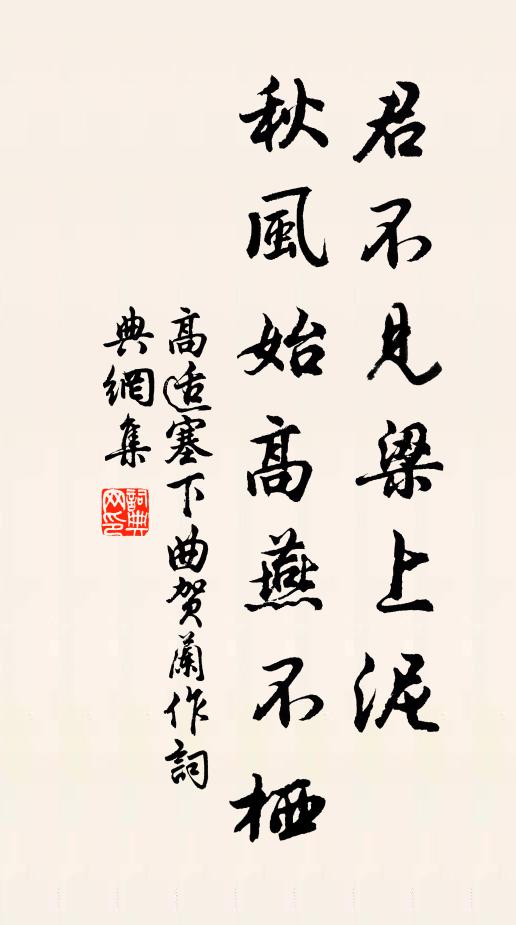 君不見梁上泥
秋風始高燕不栖
高适塞下曲賀蘭作詞
典網集
詞典
网印